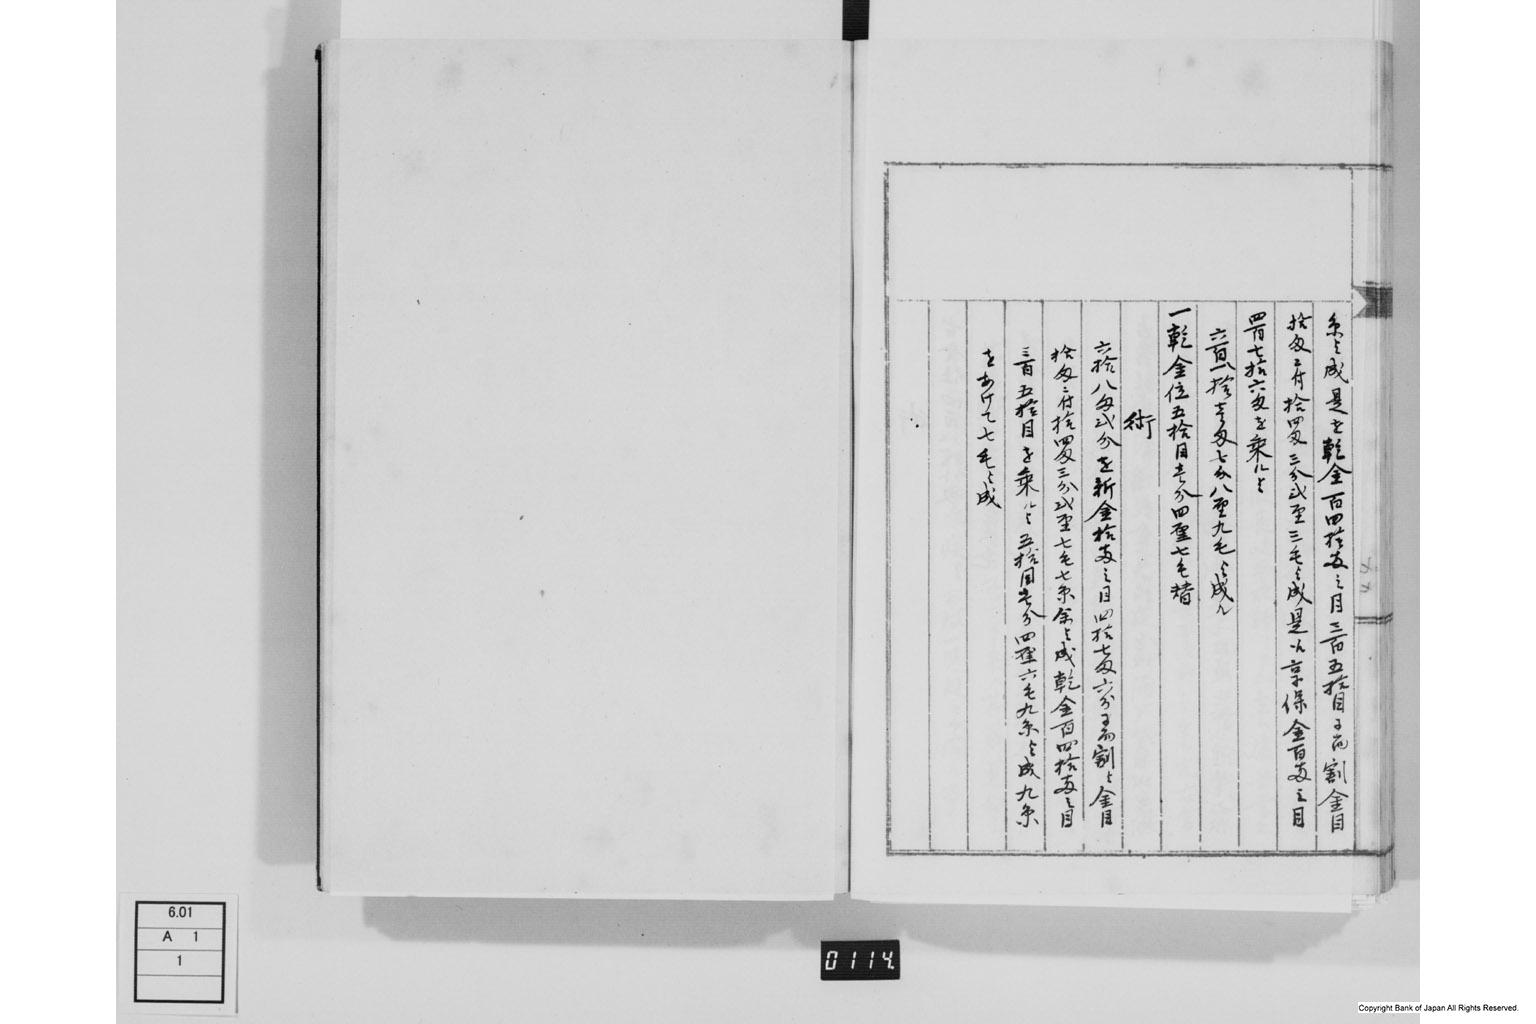 糸と成是を乾金百四拾両之目三百五拾目ニ而割金目
拾匁ニ付拾四匁三分弐厘三毛と成是以享保金百両之目
四百七拾六匁を乗ルと
六百八拾壱匁七分八厘九毛と成ル
一乾金位五拾目壱分四厘七毛替
術
六拾八匁弐分を新金拾両之目四拾七匁六分ニ而割と金目
拾匁ニ付拾四匁三分弐厘七毛七糸余と成乾金百四拾両之目
三百五拾目を乗ルと五拾目壱分四厘六毛九糸と成九糸
をあけて七毛と成
6.01
A 1
1
0114
Copyright Bank of Japan All Rights Reserved.